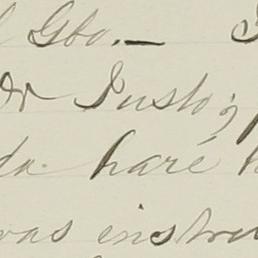 l Gbo.—
or Justo;
da. haré
vas instru